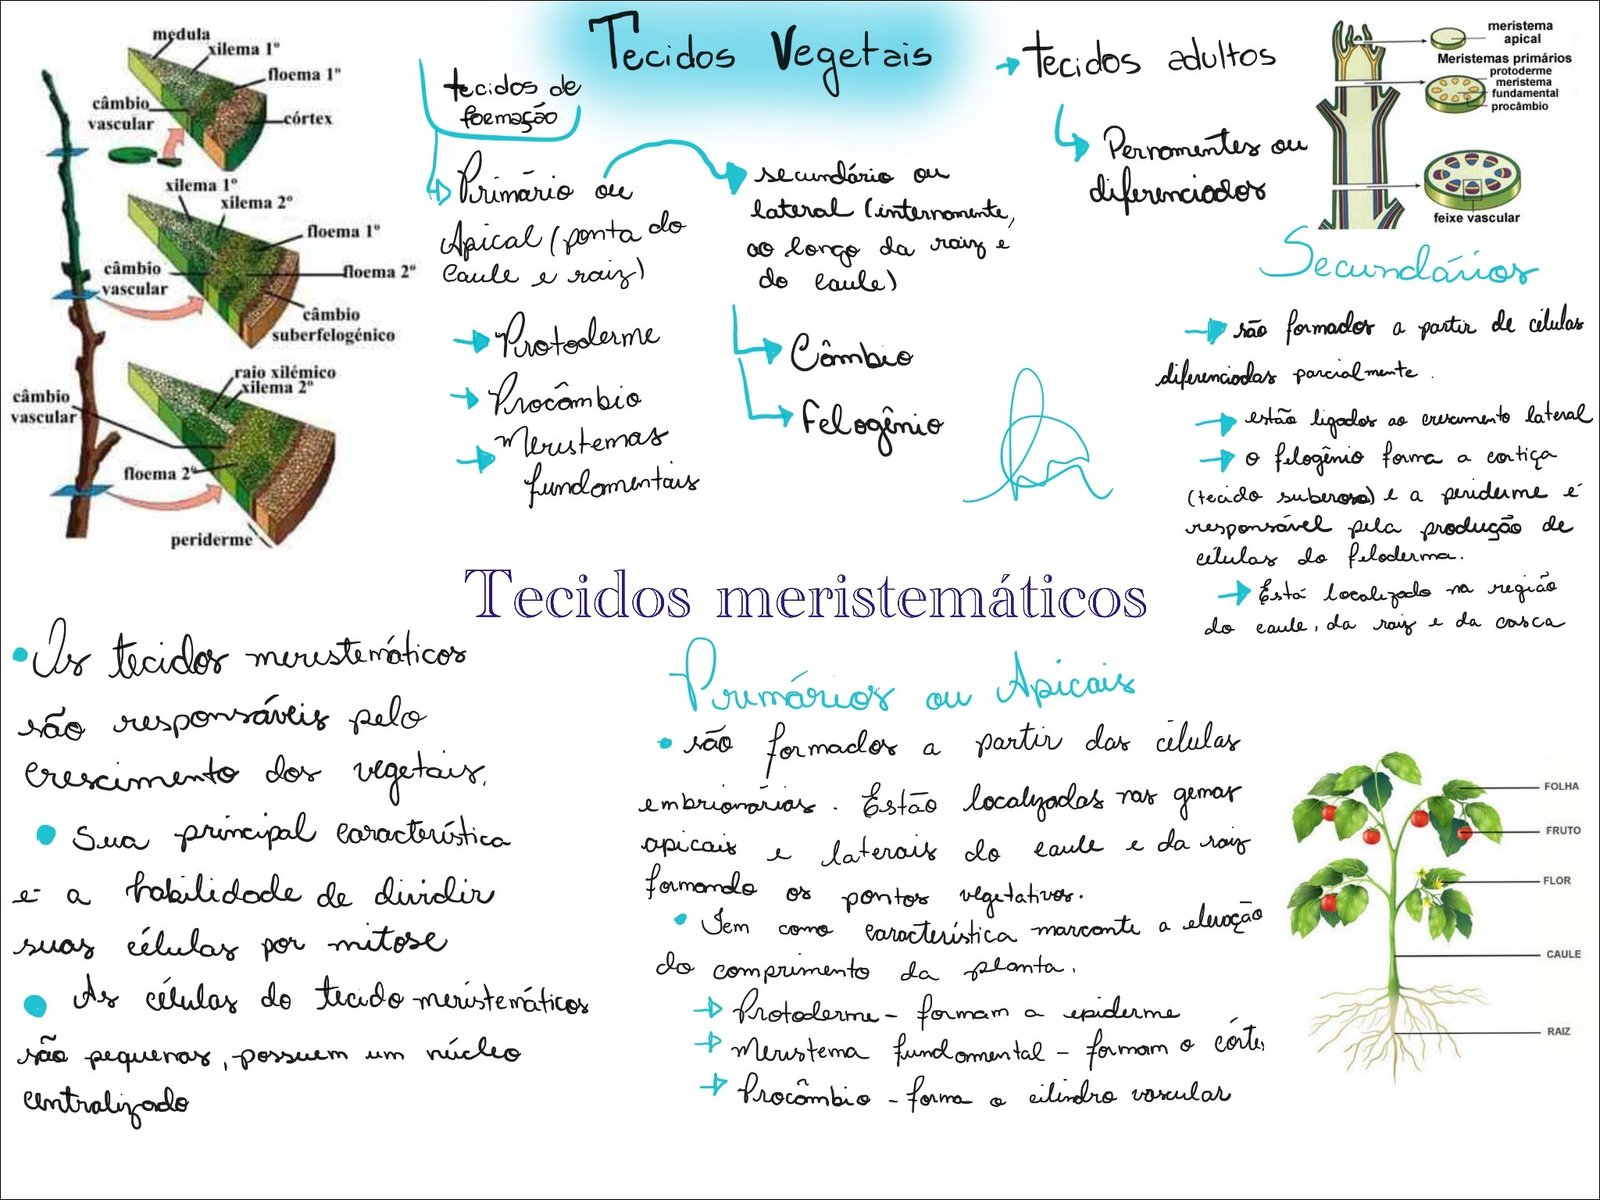 Tecidos Vegetais
tecidos de
formação
Primário ou
Apical (ponta do
caule e raiz)
Protoderme
Procâmbio
Meristemas
fundamentais
secundário ou
lateral (internamente,
ao longo da raiz e
do caule)
Câmbio
Felogênio
tecidos adultos
Permamentes ou
diferenciados
medula
xilema 1º
floema 1º
câmbio
vascular
córtex
xilema 1º
xilema 2º
floema 1º
câmbio
vascular
floema 2º
câmbio
suberfelogénico
raio xilémico
xilema 2º
câmbio
vascular
floema 2º
periderme
meristema
apical
Meristemas primários
protoderme
meristema
fundamental
procâmbio
feixe vascular
Secundários
são formados a partir de células
diferenciadas parcialmente.
estão ligados ao crescimento lateral
o felogênio forma a cortiça
(tecido suberoso) e a periderme é
responsável pela produção de
células do feloderma.
Está localizado na região
do caule, da raiz e da casca
Tecidos meristemáticos
Os tecidos meristemáticos
são responsáveis pelo
crescimento dos vegetais.
Sua principal característica
é a habilidade de dividir
suas células por mitose
As células do tecido meristemáticos
são pequenas, possuem um núcleo
centralizado
Primários ou Apicais
são formados a partir das células
embrionárias. Estão localizadas nas gemas
apicais e laterais do caule e da raiz
formando os pontos vegetativos.
Tem como característica marcante a elevação
do comprimento da planta.
Protoderme - formam a epiderme
Meristema fundamental - formam o córtex
Procâmbio - forma o cilindro vascular
FOLHA
FRUTO
FLOR
CAULE
RAIZ